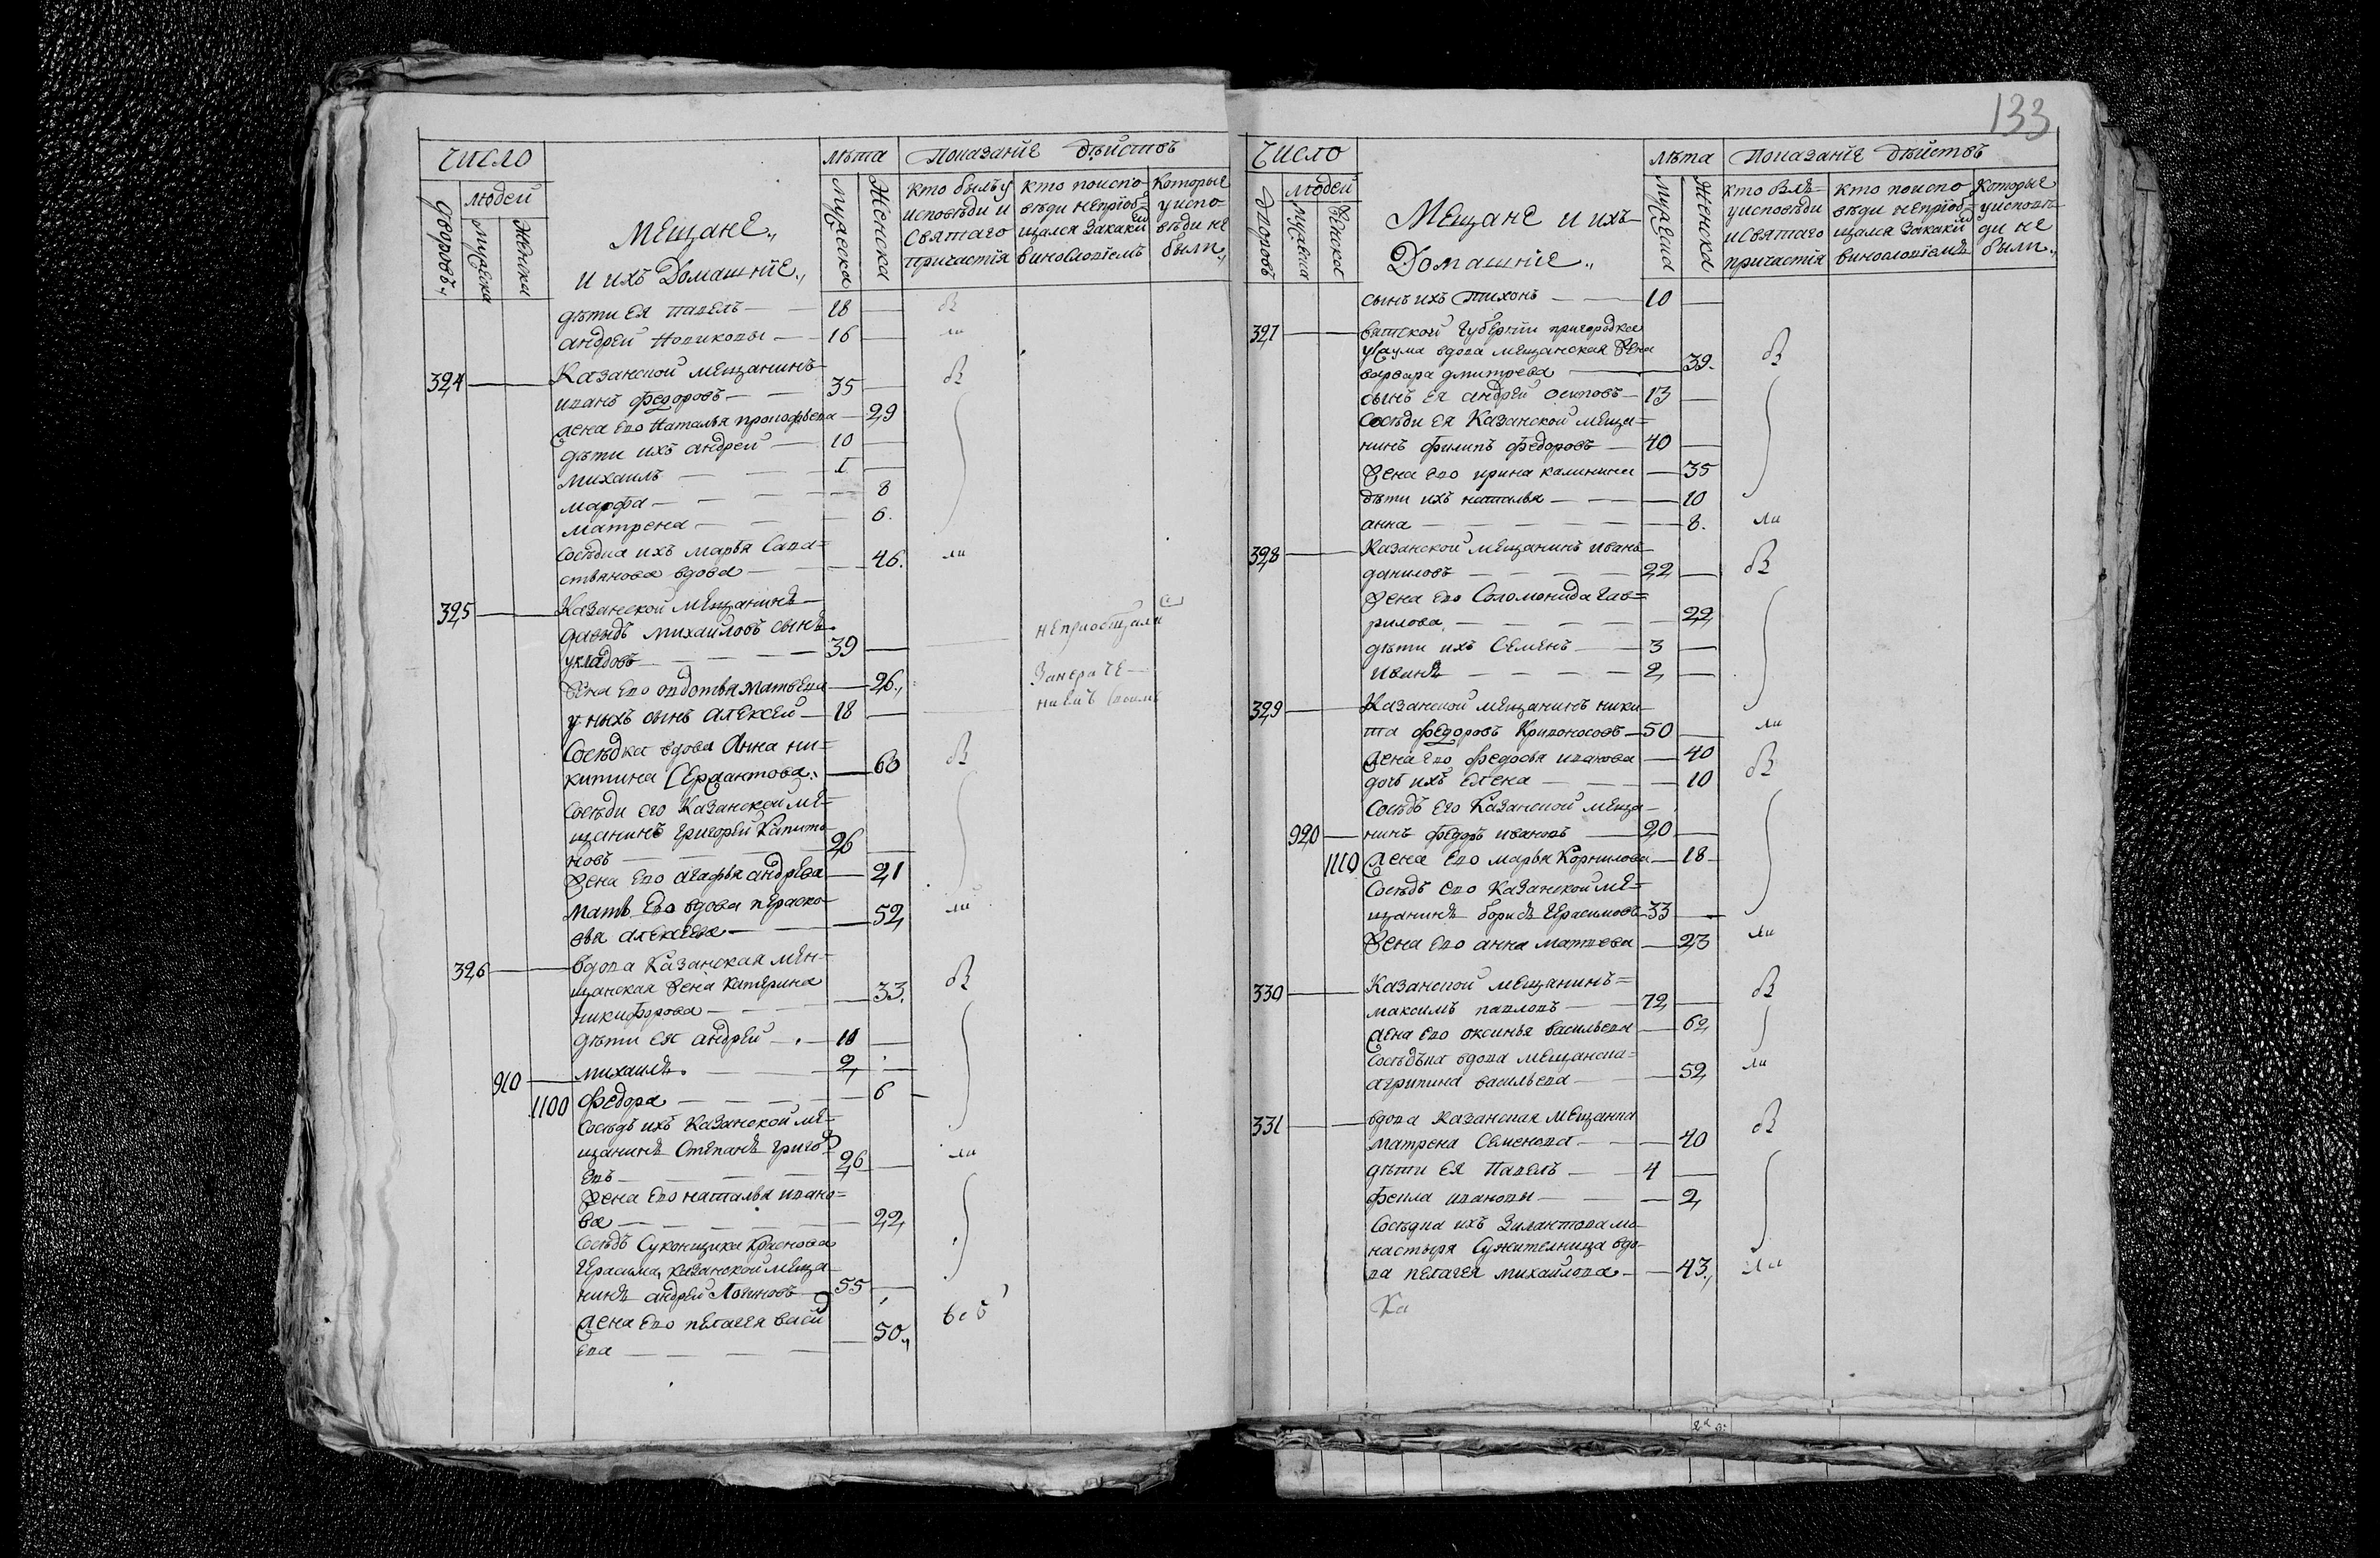 133
Число
лѣта
Показанїе дѣйствъ
дворовъ
людей
мужеска
женска
Мещане
и ихъ Домашнїе
мужеска
женска
кто былъ у
исповѣди и
святаго
причастїя
кто по испо-
вѣди непрїоб-
щался за каки
виносло
которые
у испо-
вѣди не
были
дѣти ея павелъ — 18
андрей Новиковы — 16
324 Казанской мещанинъ
иванъ федоровъ — 35
жена ево Наталья прокофьева — 29
дѣти ихъ андрей — 10
михаилъ — 1
марфа — 8
матрена — 6.
сосѣдка ихъ марья Сава=
стьянова вдова — 46.
325 Казанской мещанинъ
давыдъ михайловъ сынъ
укладовъ — 39
неприобщали
жена ево авдотья матвева — 26
у ныхъ сынъ алексей — 18
Сосѣдка вдова Анна ни=
китина — 60
сосѣди его Казанской ме=
щанинъ григорей Капито
новъ — 26
жена ево агафья андрева — 21
мать ево вдова параско
вья алексева — 52
326 вдова Казанская мен-
щанская жена катерина
никифорова — 33.
дѣти ея андрей — 11
михаилъ — 2
910
1100 федора — 6
сосѣдъ ихъ Казанской ме=
щанинъ Степанъ григо
евъ — 26
жена ево наталья ивано=
ва — 22
сосѣдъ Суконщика Краснова
Герасима, казанской меща
нинъ андрей Логиновъ — 55
жена ево пелагея васи
ева — 50
Число
лѣта
Показанїе дѣйствъ
дворовъ
людей
мужеска
женска
Мещане и ихъ
Домашнїе
мужеска
женска
кто былъ
у исповѣди
и святаго
причастїя
кто по испо
вѣди непрїоб-
щался за каки
которые
у исповѣ-
ди не
были
сынъ ихъ тихонъ — 10
327 вятской губернїи пригородка
вдова мещанская жена
варвара дмитрева — 39.
сынъ ея андрей осиповъ — 13
Сосѣди ея Казанской меща=
нинъ филипъ федоровъ — 40
жена ево ирина калинина — 35
дѣти ихъ наталья — 10
анна — 8.
328 Казанской мещанинъ иванъ
даниловъ — 22
жена ево Соломонида гав=
рилова — 22
дѣти ихъ Семенъ — 3
иванъ — 2
329 Казанской мещанинъ ники
та федоровъ Кривоносовъ — 50
жена ево федосья иванова — 40
дочь ихъ елена — 10
Сосѣдъ его Казанской меща-
920 нинъ федоръ ивановъ — 20
1110 жена ево марья Корнилова — 18
Сосѣдъ ево Казанской ме=
щанинъ борисъ Герасимовъ — 33
жена ево анна матвева — 23
330 Казанской мещанинъ=
максимъ павловъ — 72
жена ево оксинья васильева — 62
сосѣдка вдова мещанска=
агрипина васильева — 52
331 вдова Казанская мещанка
матрена Семенова — 40
дѣти ея Павелъ — 4
фекла ивановы — 2
Сосѣдка ихъ Зилантова мо
настыря Служителница вдо
ва пелагея михайлова — 43.
Ка